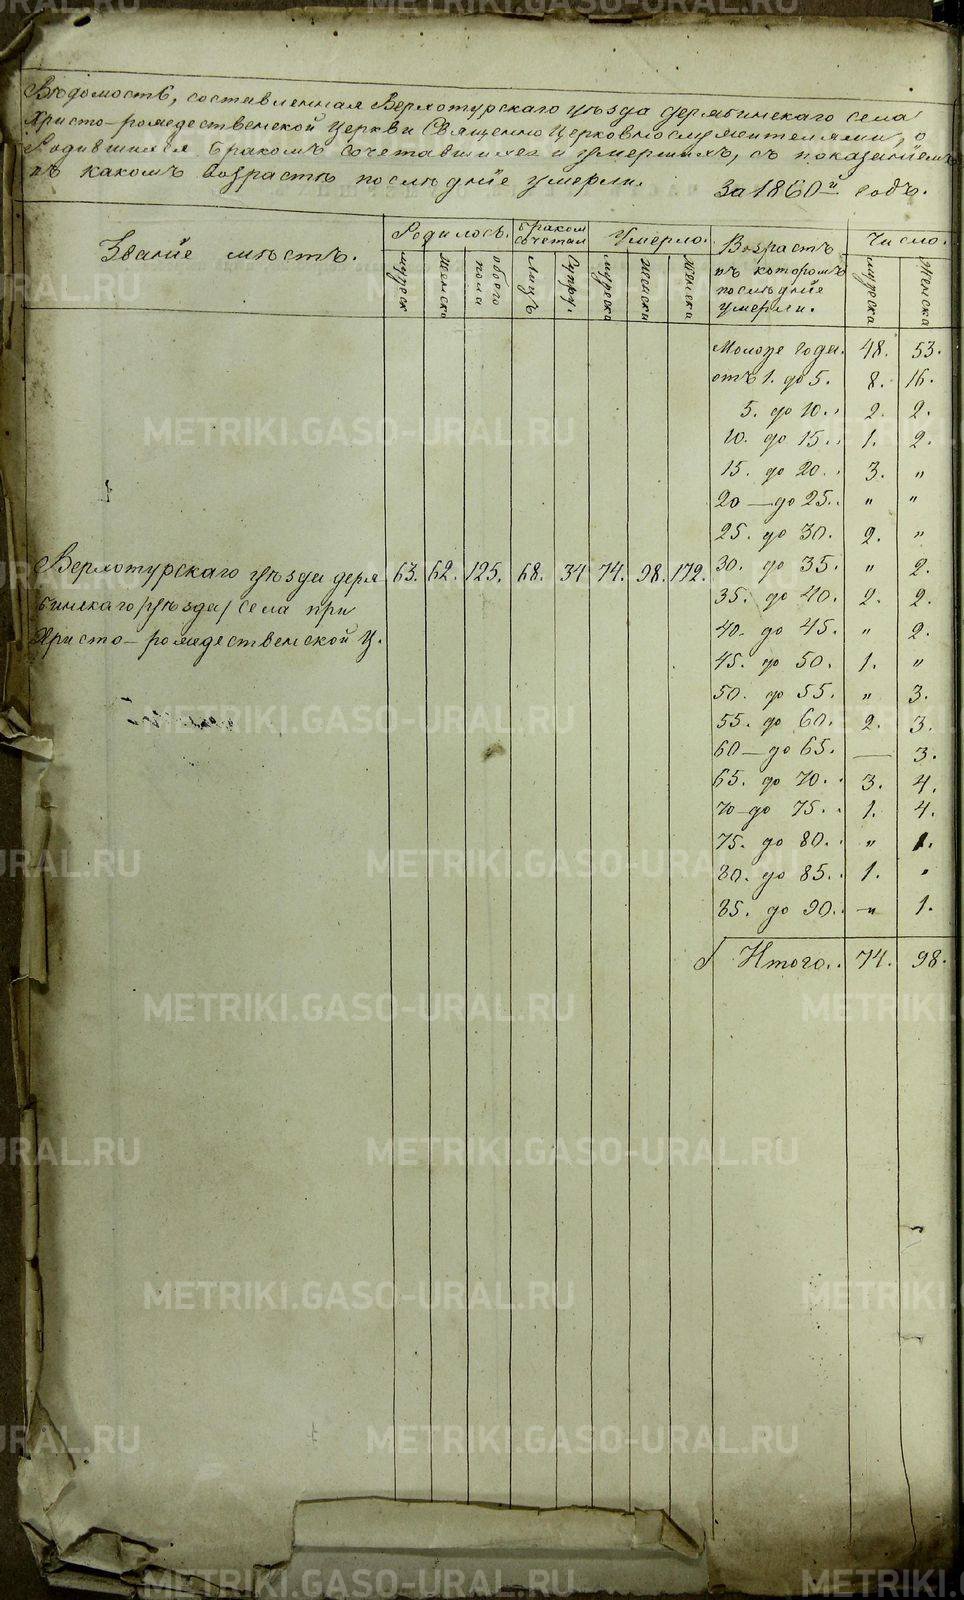 Вѣдомость, составленная Верхотурскаго уѣзда дерябинскаго села
Христо-рождественской Церкви Священно Церковнослужителями, о
Родившихся бракомъ сочетавшихся и умершихъ, съ показанiемъ
въ какомъ возрастѣ послѣднiе умерли. За 1860й годъ.
Званiе мѣстъ.
Родилось.
мужеска
Женска
обоего пола
бракомъ сочетал
Лицъ
Супру.
Умерло.
мужеска
Женска
Женска
Возрастъ
въ которомъ
послѣднiе
умерли.
Число.
мужеска
Женска
Моложе года. 48. 53.
отъ 1. до 5. 8. 16.
5. до 10. 2. 2.
10. до 15. 1. 2.
15. до 20. 3. "
20 — до 25. " "
25. до 30. 2. "
Верхотурскаго уѣзда деря 63. 62. 125. 68. 34 74. 98. 172. 30. до 35. " 2.
бинскаго /уѣзда/ села при
35. до 40. 2. 2.
Христо-рождественской Ц.
40. до 45. " 2.
45. до 50. 1. "
50. до 55. " 3.
55. до 60. 2. 3.
60 — до 65. — 3.
65. до 70. 3. 4.
70 — до 75. 1. 4.
75. до 80. " 1.
80. до 85. 1. "
85. до 90. — " 1.
Итого. 74. 98.
METRIKI.GASO-URAL.RU